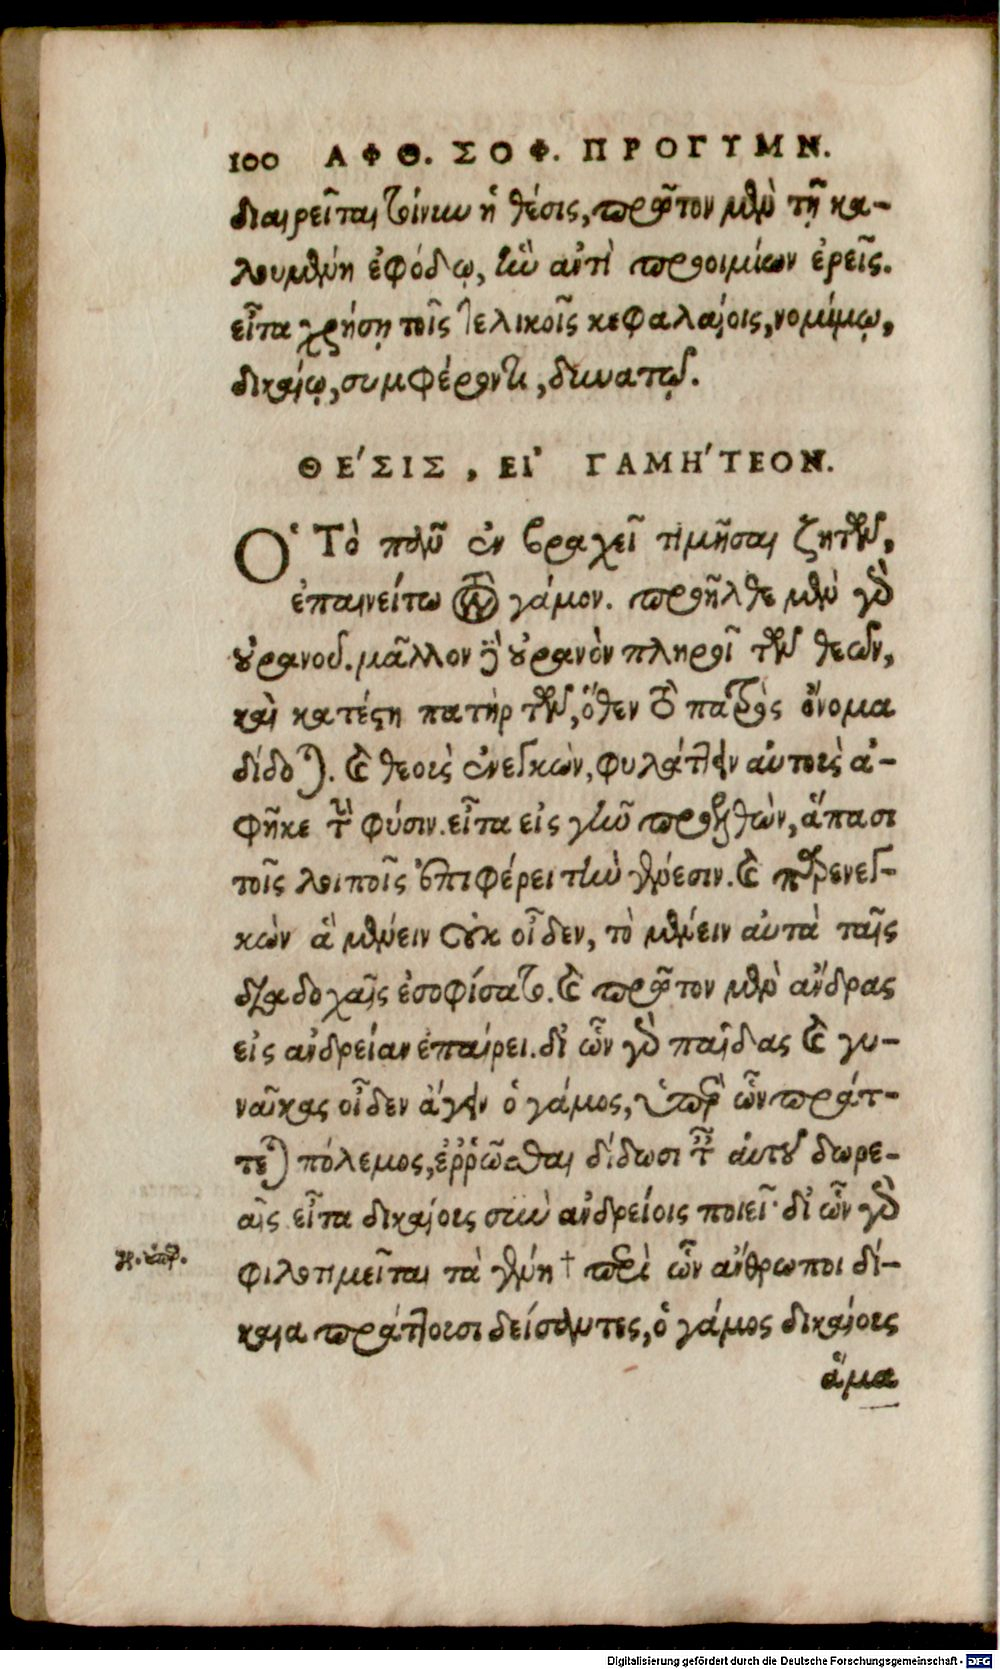 100 ΑΦΘ. ΣΟΦ. ΠΡΟΓΥΜΝ.
διαιρεῖται τοίνυν ἡ θέσις, πρῶτον μὲν τῇ κα-
λουμένῃ ἐφόδῳ, ἣν ἀντὶ προοιμίων ἐρεῖς.
εἶτα χρήσῃ τοῖς τελικοῖς κεφαλαίοις, νομίμῳ,
δικαίῳ, συμφέροντι, δυνατῷ.
ΘΕ΄ΣΙΣ, ΕΙ᾿ ΓΑΜΗ΄ΤΕΟΝ.
Ὁ Τὸ πᾶν ἐν βραχεῖ τιμῆσαι ζητῶν,
ἐπαινείτω τὸν γάμον. προῆλθε μὲν γὰρ
οὐρανοῦ. μᾶλλον δὲ οὐρανὸν πληροῖ τῶν θεῶν,
καὶ κατέστη πατὴρ τῶν, ὅθεν τὸ πατρὸς ὄνομα
δίδοται. καὶ θεοὺς ἐνεγκὼν, φυλάττειν αὐτοὺς ἀ-
φῆκε τὴν φύσιν. εἶτα εἰς γῆν προελθὼν, ἅπασι
τοῖς λοιποῖς ἐπιφέρει τὴν γένεσιν. καὶ παρενεγ-
κὼν ἃ μένειν οὐκ οἶδεν, τὸ μένειν αὐτὰ ταῖς
διαδοχαῖς ἐσοφίσατο. καὶ πρῶτον μὲν ἄνδρας
εἰς ἀνδρείαν ἐπαίρει. δι᾿ ὧν γὰρ παῖδας καὶ γυ-
ναῖκας οἶδεν ἄγειν ὁ γάμος, ὑπὲρ ὧν πράτ-
τεται πόλεμος, ἐῤῥῶσθαι δίδωσι ταῖς αὐτοῦ δωρε-
αῖς εἶτα δικαίους σὺν ἀνδρείοις ποιεῖ· δι᾿ ὧν γὰρ
φιλοτιμεῖται τὰ γένη † περὶ ὧν ἄνθρωποι δί-
καια πράττουσι δείσαντες, ὁ γάμος δικαίους
ἅμα
γρ. ὑπὲρ.